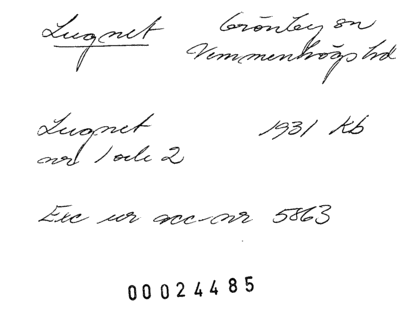 Lugnet Grönby sn
Vemmenhögs hd
Lugnet 1931 Kb
nr 1 och 2
Exc ur acc-nr 5863
00024485